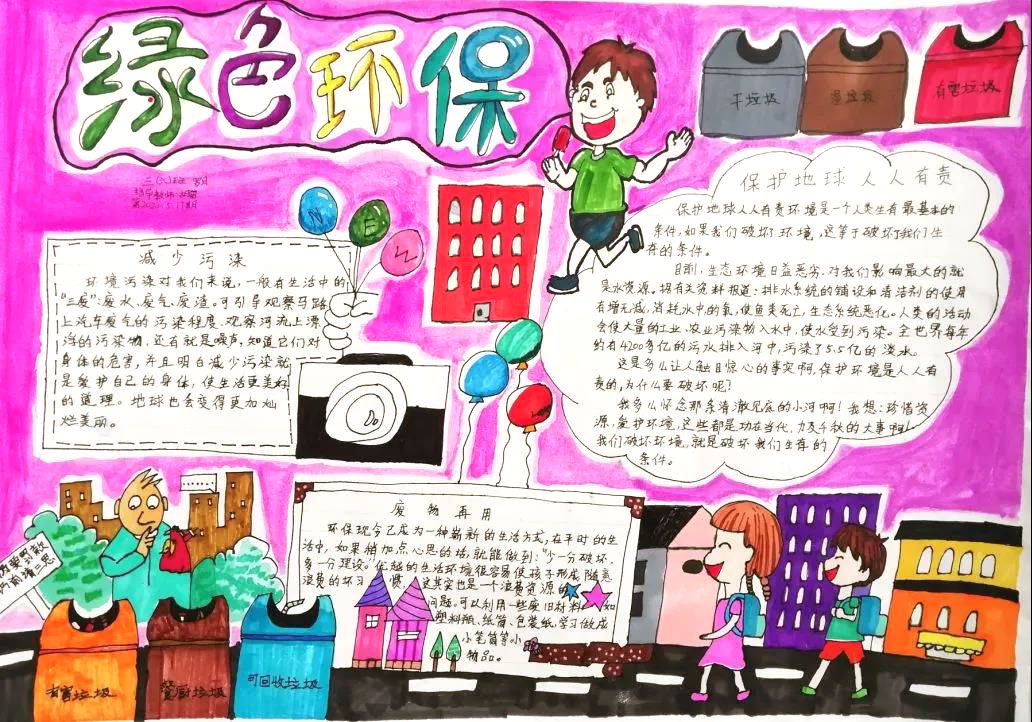 绿色环保
干垃圾
湿垃圾
有害垃圾
N
E
W
减少污染
环境污染对我们来说，一般有生活中的
"三废"：废水、废气、废渣。可引导观察马路
上汽车废气的污染程度、观察河流上漂
浮的污染物，还有就是噪声，知道它们对
身体的危害，并且明白减少污染就
是救护自己的身体，使生活更美好
的道理。地球也会变得更加灿
烂美丽。
保护地球人人有责
保护地球人人有责环境是一个人类生存最基本的
条件，如果我们破坏了环境，这等于破坏了我们生
存的条件。
目前，生态环境日益恶劣，对我们影响最大的就
是水资源。据有关资料报道：排水系统的铺设和清洁剂的使用
有增无减，消耗水中的氧，使鱼类死亡，生态系统恶化。人类的活动
会使大量的工业、农业污染物入水中，使水受到污染。全世界每年
约有4200多亿的污水排入河中，污染了5.5亿的淡水。
这是多么让人触目惊心的事实啊，保护环境是人人有
责的，为什么要破坏呢？
我多么怀念那条清澈见底的小河啊！我想：珍惜资
源，爱护环境，这些都是功在当代，力及千秋的大事啊！
我们破坏环境，就是破坏我们生存的
条件。
废物再用
环保现今已成为一种崭新的生活方式，在平时的生
活中，如果稍加点心思的话，就能做到："少一分破坏，
多一分建设。"优越的生活环境很容易使孩子形成随意
浪费的坏习惯，这其实也是一个浪费资源的
问题。可以利用一些废旧材料如
塑料瓶、纸筒、包装纸，学习做成
小笔筒等小
物品。
有害垃圾
餐厨垃圾
可回收垃圾